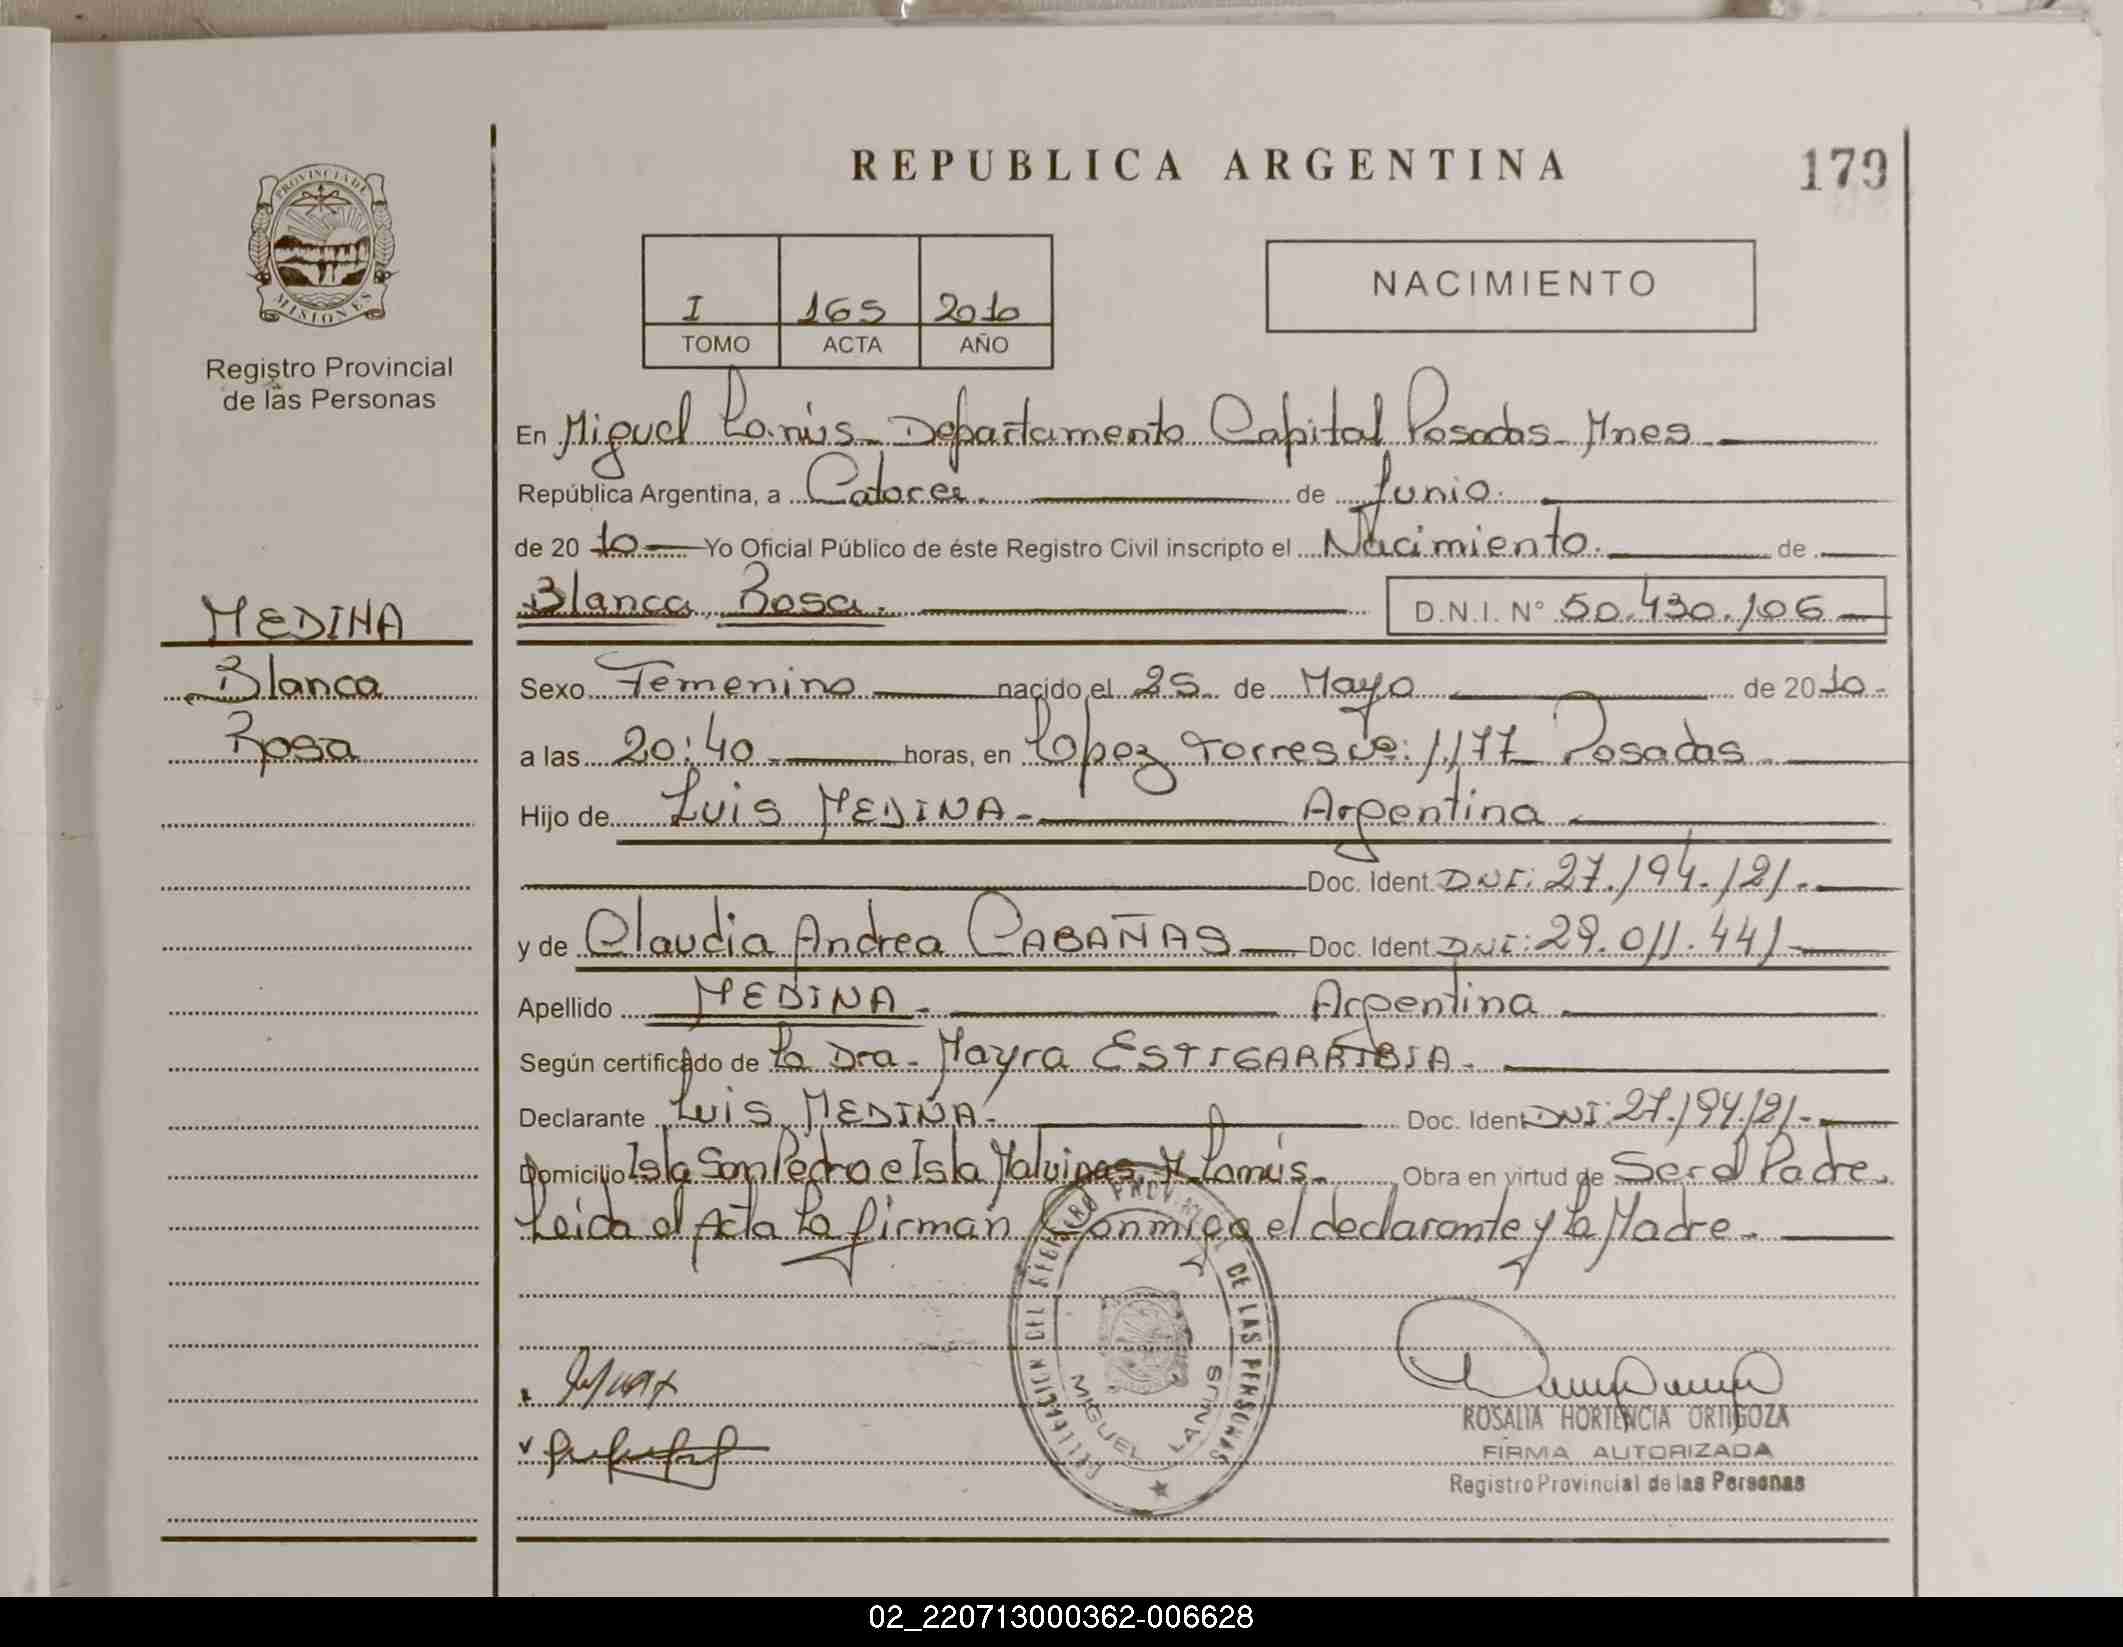 REPUBLICA ARGENTINA
179
PROVINCIA DE
MISIONES
Registro Provincial
de las Personas
I 165 2010
TOMO ACTA AÑO
NACIMIENTO
En Miguel Lanús Departamento Capital Posadas Mnes
República Argentina, a Catorce de Junio
de 20 10 Yo Oficial Público de éste Registro Civil inscripto el Nacimiento de
Blanca Rosa D.N.I. N° 50.430.106
MEDINA
Blanca
Rosa
Sexo Femenino nacido el 25 de Mayo de 2010
a las 20:40 horas, en Lopez Torres Nº: 1177 Posadas
Hijo de Luis MEDINA Argentina
Doc. Ident. DNI: 27.194.121
y de Claudia Andrea CABAÑAS Doc. Ident. DNI: 29.011.441
Apellido MEDINA Argentina
Según certificado de La Dra. Mayra ESTIGARRIBIA
Declarante Luis MEDINA Doc. Ident DNI: 27.194.121
Domicilio Isla San Pedro e Isla Malvinas M Lanús Obra en virtud de Ser el Padre.
Leida el Acta La firman Conmigo el declarante y la Madre.
DEL REGISTRO PROVINCIAL DE LAS PERSONAS
MIGUEL LANUS
ROSALIA HORTENCIA ORTIGOZA
FIRMA AUTORIZADA
Registro Provincial de las Personas
02_220713000362-006628